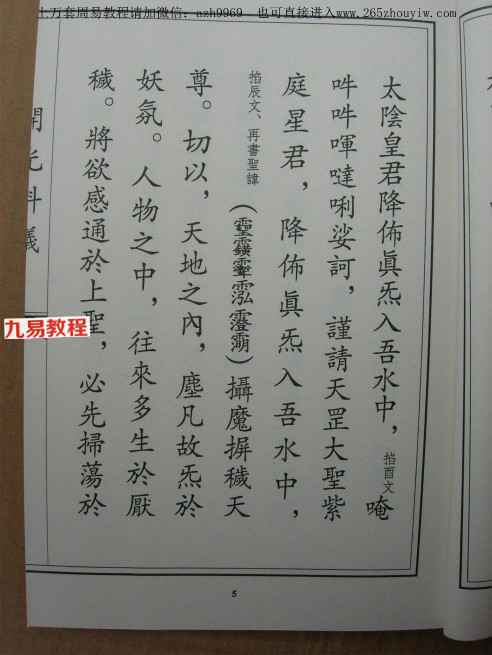 上万套周易教程请加微信：azh9969 也可直接进入www.265zhouyiw.com
太陰皇君降佈眞炁入吾水中，掐酉文唵
吽吽㗲噠唎娑訶，謹請天罡大聖紫
庭星君，降佈眞炁入吾水中，
掐辰文、再書聖諱（）攝魔摒穢天
尊。切以，天地之內，塵凡故炁於
妖氛。人物之中，往來多生於厭
穢。將欲感通於上聖，必先掃蕩於
開元科儀
九易教程
5